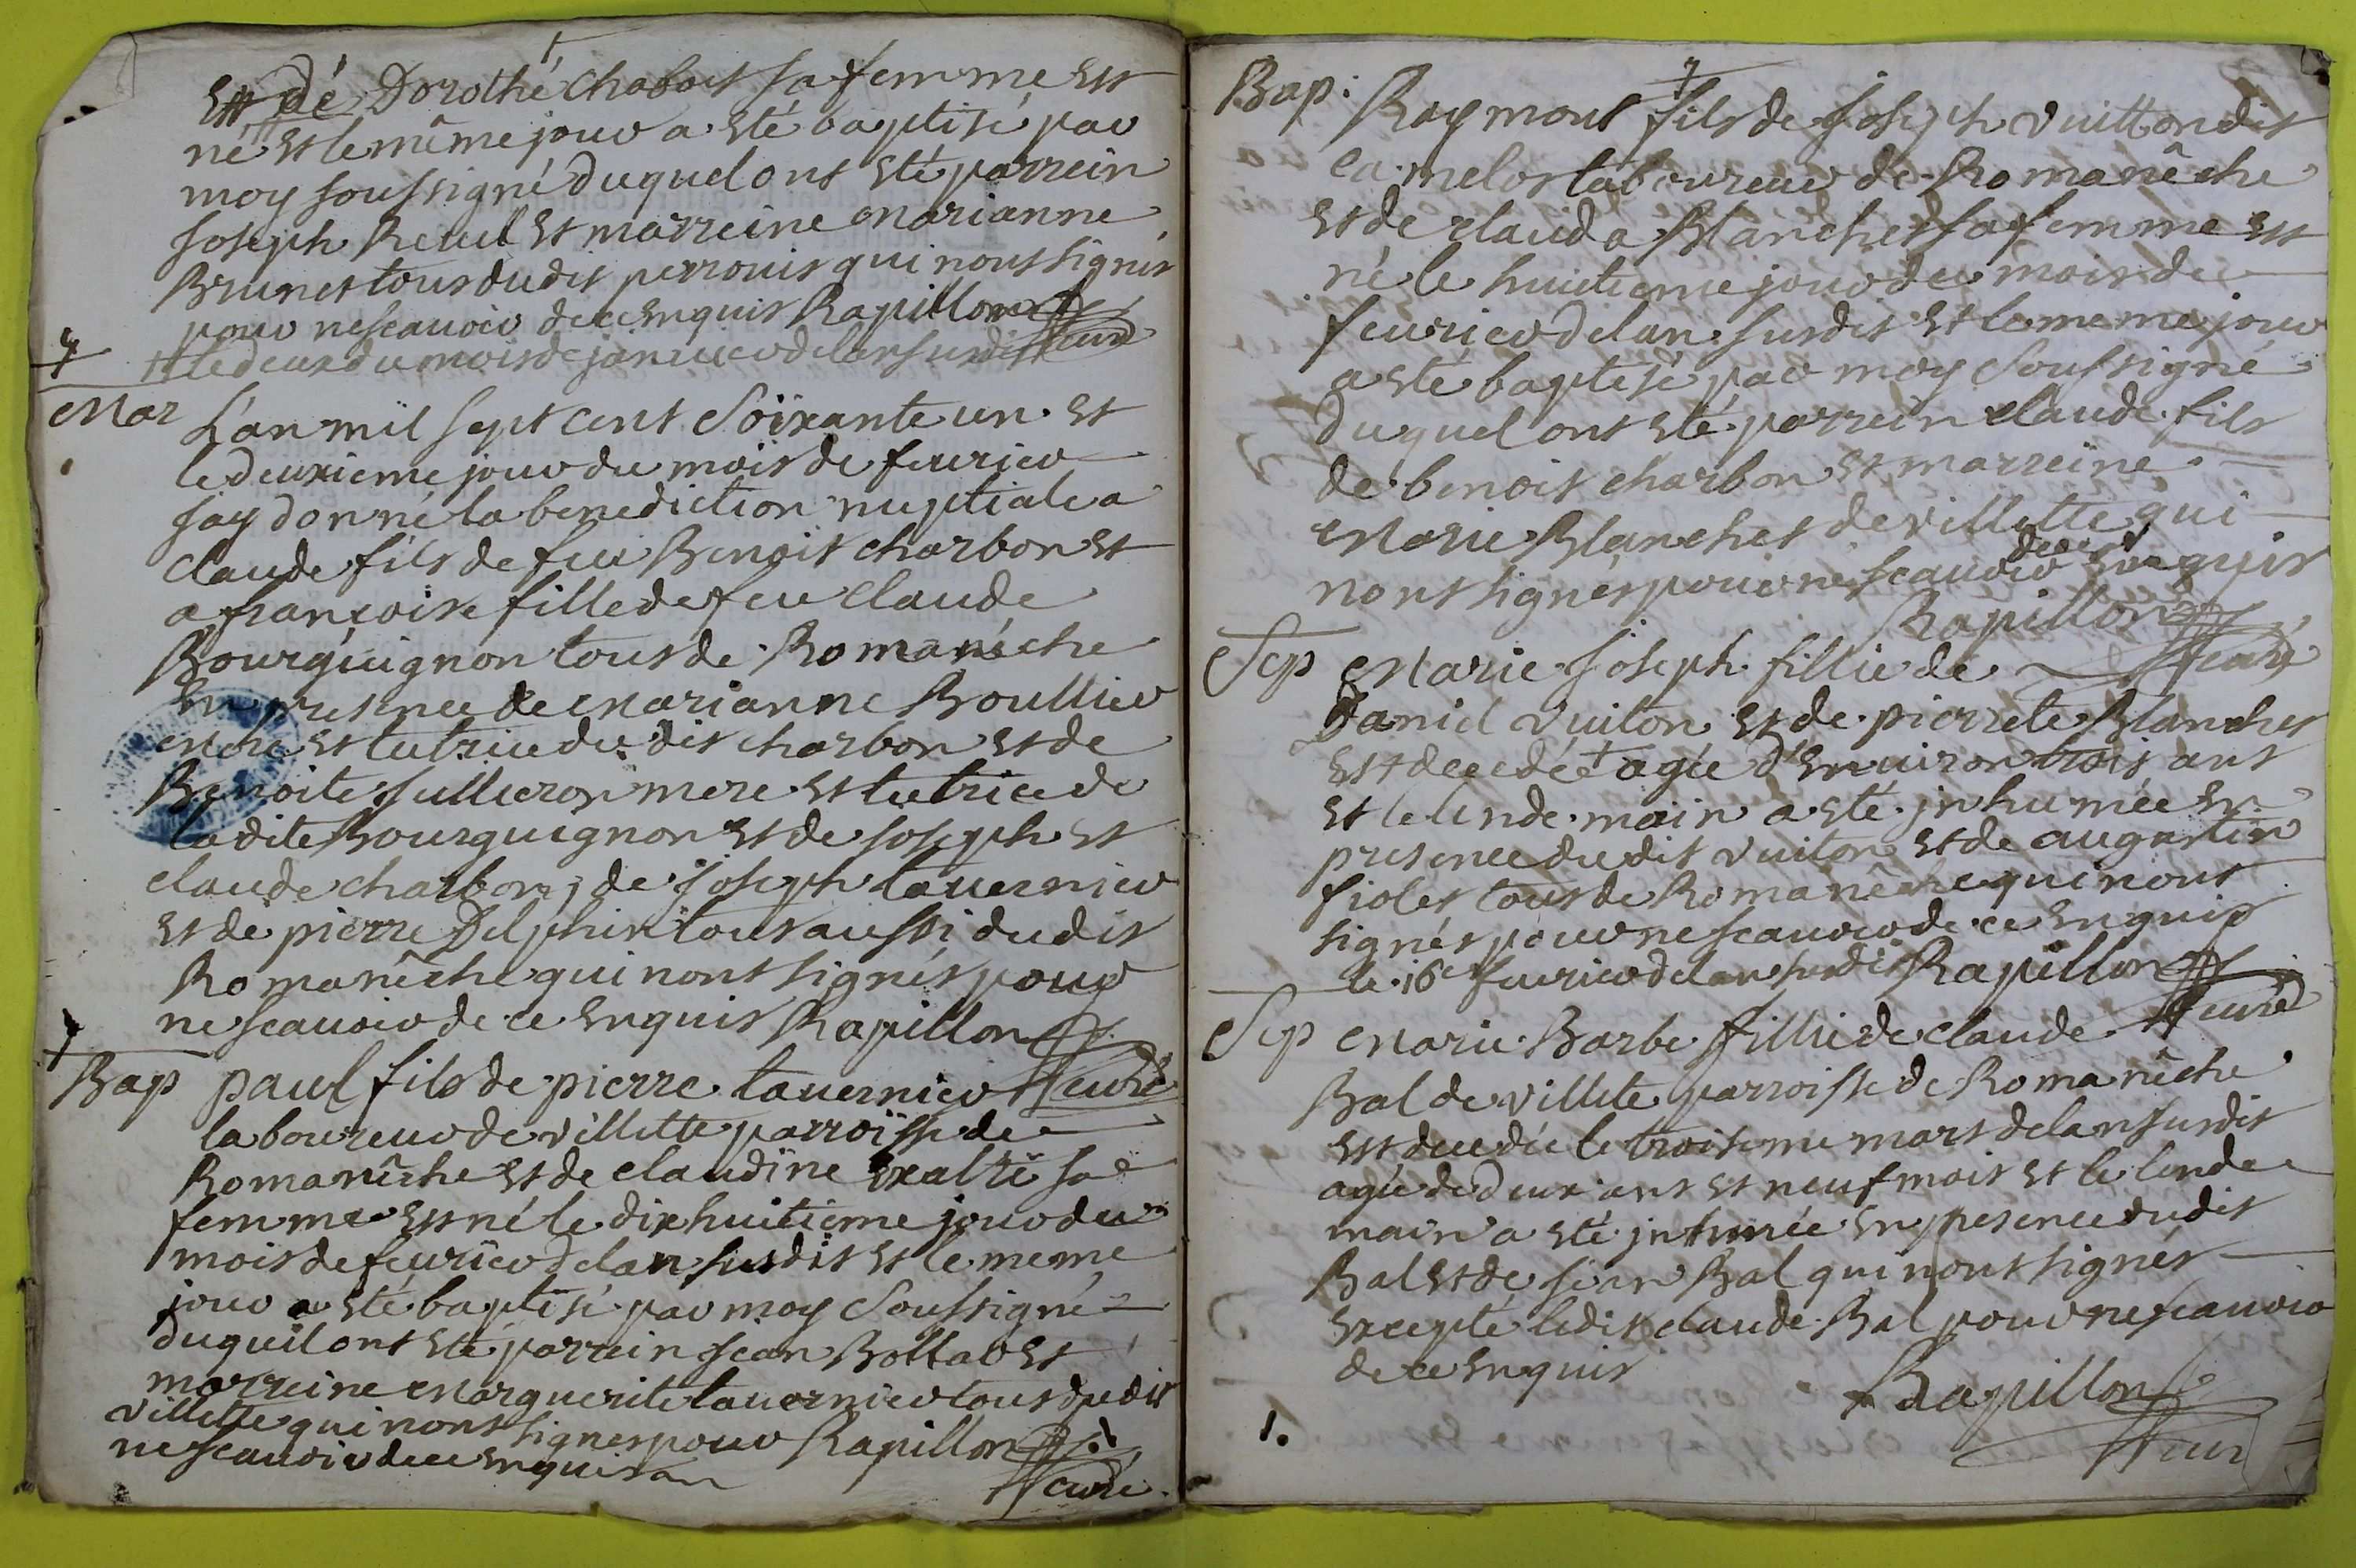 Et de Dorothé Chabost sa femme Est
né Et le même jour a Eté baptisé par
moy soussigné duquel ont Eté parrein
Joseph Revel Et marreine Marianne
Brunet tous dudit perrouis qui nont signés
pour ne scavoir de ce Enquis Rapillon
le deux du mois de janvier de lan susdit Curé
Mar L'an mil sept cent Soixante un Et
le deuxieme jour du mois de fevrier
jay donné la benediction nuptiale a
Claude fils de feu Benoit charbon Et
a françoise fille de feu Claude
Bourguignon tous de Romanêche
En presence de Marianne Boullier
mere Et tutrice du dit charbon Et de
Benoite mere Et tutrice de
ladite Bourguignon Et de Joseph Et
claude charbon, de Joseph tavernier
Et de pierre Delphin tous aussi dudit
Romanêche qui nont signés pour
ne scavoir de ce Enquis Rapillon
Curé
Bap paul fils de pierre tavernier
laboureur de villette parroisse de
Romanêche Et de claudine sa
femme Est né le dixhuitieme jour du
mois de fevrier de lan susdit Et le meme
jour a Eté baptisé par moy Soussigné
duquel ont Eté parrein Jean Bottar Et
marreine Marguerite tavernier tous dudit
villette qui nont signes pour Rapillon
ne scavoir de ce Enquis Curé
Bap. Raymont fils de Joseph vuitton dit
la melos laboureur de Romanêche
Et de clauda Blanchet sa femme Est
né le huitieme jour du mois de
fevrier de lan susdit Et le meme jour
a Eté baptisé par moy Soussigné
Duquel ont Eté parrein claude fils
de benoit charbon Et marreine
Marie Blanchet de villette qui
nont signés pour ne scavoir de ce Enquis
Rapillon
Curé
Sep Marie Joseph fillie de
Daniel vuiton Et de pierrete Blanchet
Est decedée + agée d'Environ trois ans
Et le lendemain a Eté inhumée En
presence dudit vuiton Et de augustin
fiolet tous de Romanêche qui nont
signés pour ne scavoir de ce Enquis
le 16e fevrier de lan susdit Rapillon
Curé
Sep Marie Barbe fillie de claude
Bal de villete parroisse de Romanêche
Est decedée le troisieme mars de lan susdit
agée de deux ans Et neuf mois Et le lende
main a Eté inhumée En presence dudit
Bal Et de Jean Bal qui nont signés
Excepté ledit claude Bal pour ne scavoir
de ce Enquis
Rapillon
Curé
1.